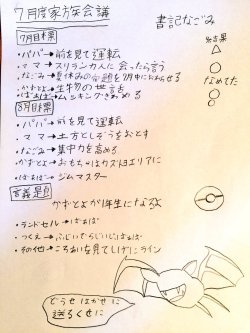 7月度家族会議
書記なごみ
7月目標
・パパ→前を見て運転
・ママ→スリランカ人に会ったら言う
・なごみ→夏休みの宿題を7月中におわらせる
・かずとよ→生き物の世話
・ばぁば→ムシキングきめる
8月目標
・パパ→前を見て運転
・ママ→土方としゃうをおとす
・なごみ→集中力を高める
・かずとよ→おもちゃはカズトヨエリアに
・ばぁば→ジムマスター
かずとよが1年生になるよ
・ランドセル→ばぁば
・つくえ→ふじいでらじいじばぁば
・その他→ころあいを見てしげにライン
なめてた
どうせはかせに
送るくせに